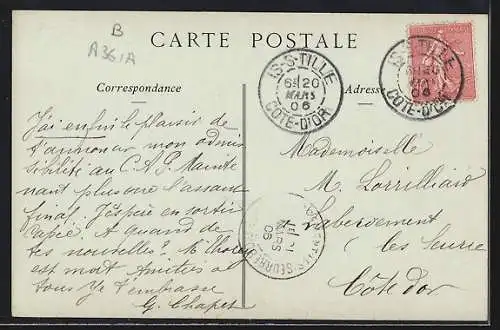 B
A361A
CARTE POSTALE
Correspondance
Adresse
IS-S-TILLE
6E 20
MARS
06
COTE-D'OR
IS-S-TILLE
MARS
06
COTE-D'OR
J'ai enfin le plaisir de
t'annoncer mon admis
sibilité au C.A.P. Mainte
nant plus que l'assaut
final. J'espère en sortir
A quand de
tes nouvelles? Mr
est mort Amitiés à
tous Je t'embrasse
G. Chapet
Mademoiselle
M. Lorrilliard
Labergement
les Seurre
Côte d'or
21
MARS
06